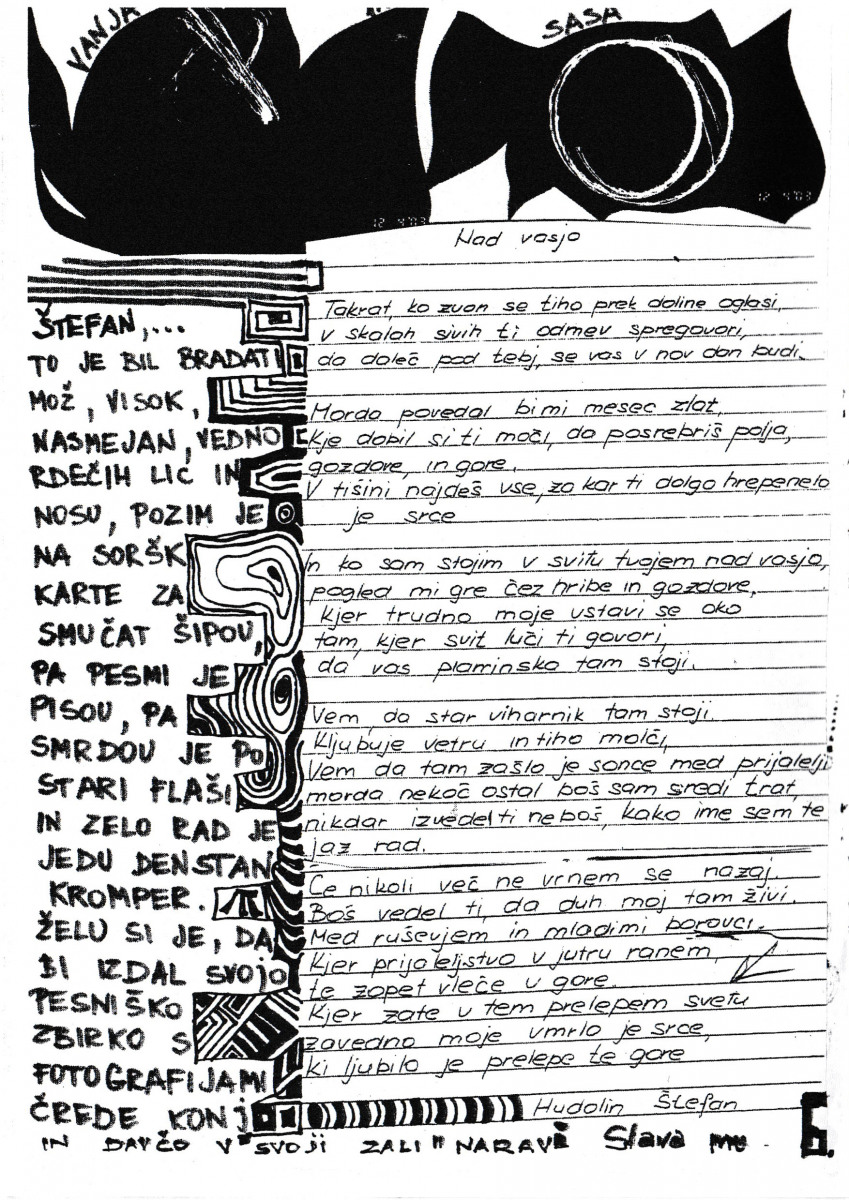 VANJA
SAŠA
12 4'03
12 4'03
ŠTEFAN,...
TO JE BIL BRADATI
MOŽ, VISOK,
NASMEJAN, VEDNO
RDEČIH LIC IN
NOSU, POZIM JE
NA SORŠK
KARTE ZA
SMUČAT ŠIPOU,
PA PESMI JE
PISOU, PA
SMRDOU JE PO
STARI FLAŠI
IN ZELO RAD JE
JEDU DENSTAN
KROMPER.
ŽELU SI JE, DA
BI IZDAL SVOJO
PESNIŠKO
ZBIRKO S
FOTOGRAFIJAMI
ČREDE KONJ
IN DAVČO V "SVOJI ZALI" NARAVI Slava mu.
Nad vasjo
Takrat, ko zvon se tiho prek doline oglasi,
v skalah sivih ti odmev spregovori,
da daleč pod tebj, se vas v nov dan budi.
Morda povedal bi mi mesec zlat,
Kje dobil si ti moči, da posrebriš polja,
gozdove, in gore.
V tišini najdeš vse, za kar ti dolgo hrepenelo
je srce
In ko sam stojim v svitu tvojem nad vasjo,
pogled mi gre čez hribe in gozdove,
kjer trudno moje ustavi se oko
tam, kjer svit luči ti govori,
da vas planinska tam stoji.
Vem, da star viharnik tam stoji.
Kljubuje vetru in tiho molči,
Vem da tam zašlo je sonce med prijatelji
morda nekoč ostal boš sam sredi trat,
nikdar izvedel ti neboš, kako ime sem te
jaz rad.
Če nikoli več ne vrnem se nazaj.
Boš vedel ti, da duh moj tam živi.
Med ruševjem in mladimi borovci.
Kjer prijateljstvo v jutru ranem,
te zopet vleče v gore.
Kjer zate v tem prelepem svetu
zavedno moje vmrlo je srce,
ki ljubilo je prelepe te gore
Hudolin Štefan
6.